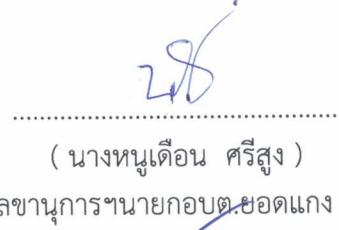 ( นางหนูเดือน ศรีสูง )
ลขานุการฯนายกอบต.ยอดแกง